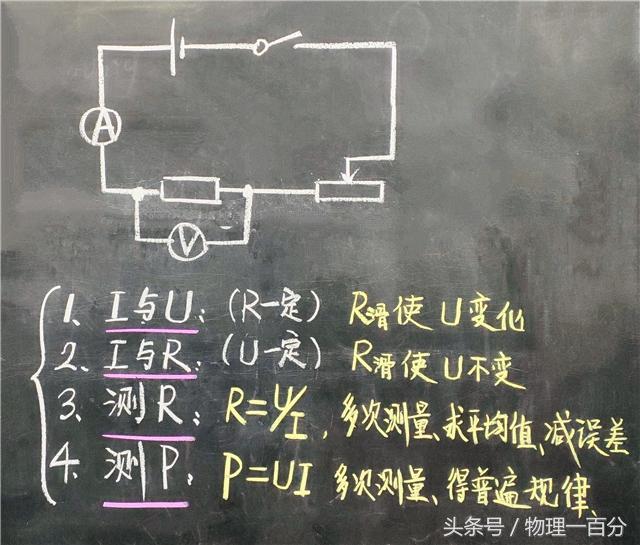 A
V
1、I与U：（R一定） R滑使U变化
2、I与R：（U一定） R滑使U不变
3、测R： R=U/I，多次测量、求平均值、减误差
4、测P： P=UI 多次测量、得普遍规律、
头条号 / 物理一百分